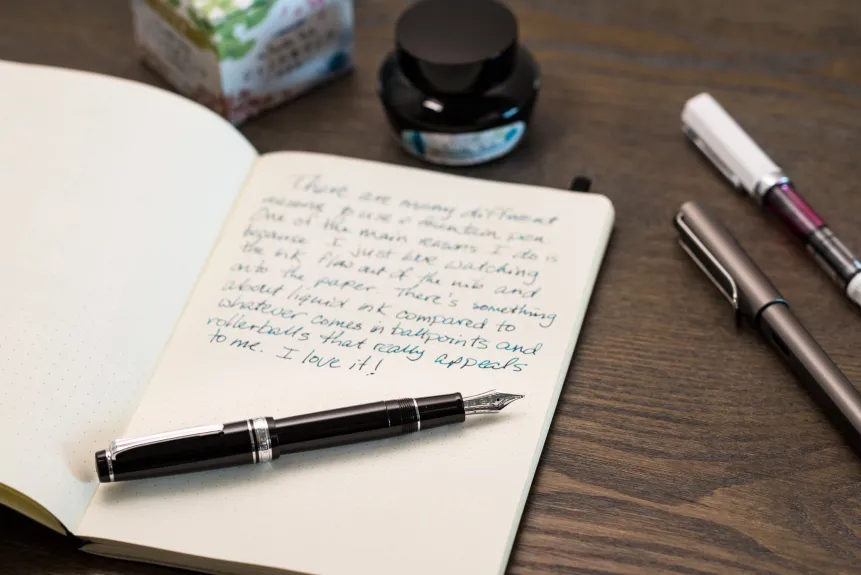 There are many different
reasons to use a fountain pen.
One of the main reasons I do is
because I just love watching
the ink flow out of the nib and
onto the paper. There's something
about liquid ink compared to
whatever comes in ballpoints and
rollerballs that really appeals
to me. I love it!